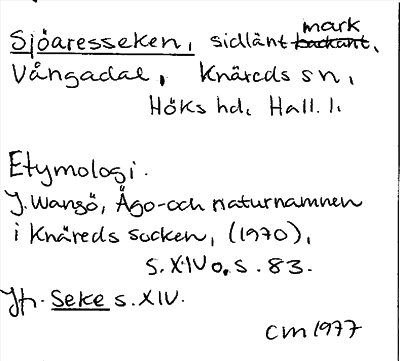 Sjöaresseken, sidlänt mark,
Vångadal, Knäreds sn,
Höks hd, Hall. l.
Etymologi.
J. Wangö, Ägo- och naturnamnen
i Knäreds socken, (1970),
s. XIV o. s. 83.
Jfr. Seke s. XIV.
CM 1977